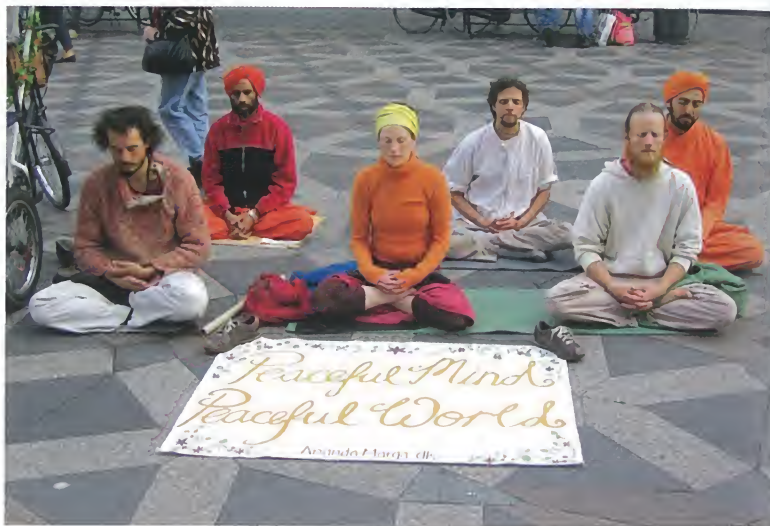 Peaceful Mind
Peaceful World
Ananda Marga.dk